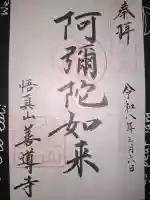 奉拝
令和八年三月六日
阿彌陀如来
悟真山善導寺